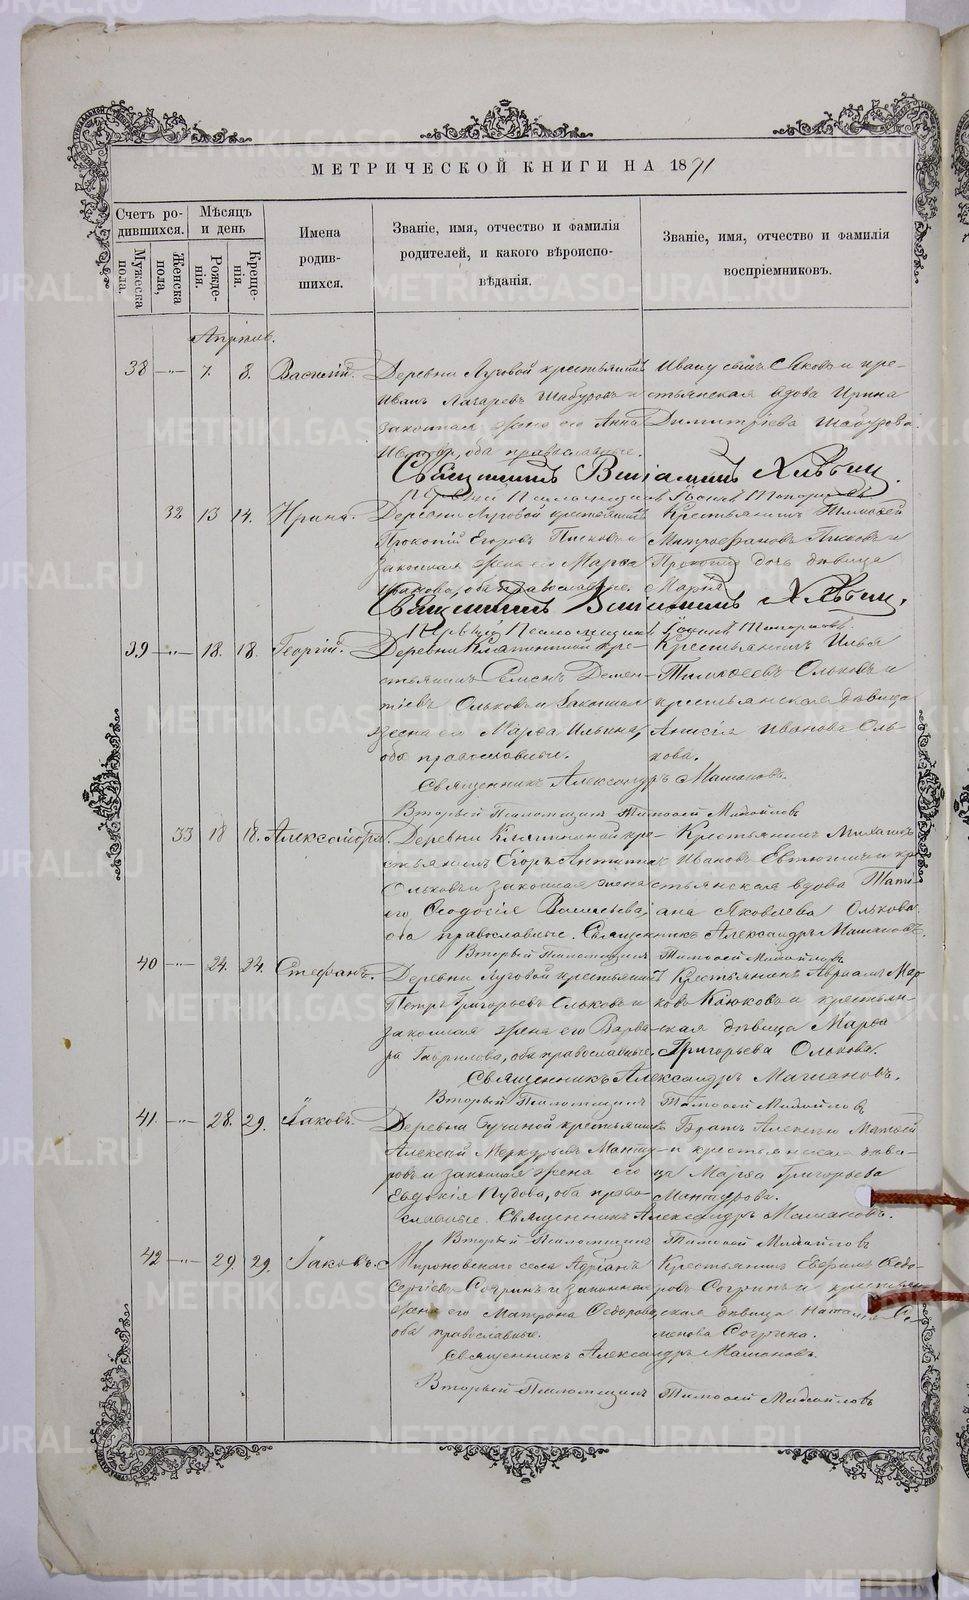 МЕТРИЧЕСКОЙ КНИГИ НА 1871
Счетъ ро-
дившихся.
Мѣсяцъ
и день
Мужеска
пола.
Женска
пола.
Рожде-
нія.
Креще-
нія.
Имена
родив-
шихся.
Званіе, имя, отчество и фамилія
родителей, и какого вѣроиспо-
вѣданія.
Званіе, имя, отчество и фамилія
воспріемниковъ.
Апрѣль.
38 7. 8. Василій.
Деревни Луговой крестьянинъ
Иванъ Лазаревъ Шабуровъ и
законная жена его Анна
оба православные.
Ивану сынъ Яковъ и кре-
стьянская вдова Ирина
Димитріева Шабурова.
Священникъ Веніаминъ Хлѣбин.
32 13 14. Ирина.
Деревни Луговой крестьянинъ
Прокопій Егоровъ Писковъ и
законная жена его Марѳа
оба православные.
Крестьянинъ Тимоѳей
Митрофановъ Писковъ и
Прокопія дочь дѣвица
Марія
Священникъ Веніаминъ Хлѣбин.
39 18. 18. Георгій.
Деревни Клятышной кре-
стьянинъ Семенъ Демен-
тіевъ Ольковъ и законная
жена его Марѳа Ильина,
оба православные.
Крестьянинъ Илья
Тимоѳеевъ Ольковъ и
крестьянская дѣвица
Анисія Иванова Оль-
кова.
Священникъ Александръ Машановъ.
Вторый Псаломщикъ Тимоѳей Михайловъ
33 18 18. Александра.
Деревни кре-
стьянинъ Егоръ Антипинъ
Ольковъ и законная жена
его Ѳеодосія Васильева,
оба православные.
Крестьянинъ Михаилъ
Ивановъ и кре-
стьянская вдова Тати-
ана Яковлева Олькова.
Священникъ Александръ Машановъ.
Вторый Псаломщикъ Тимоѳей Михайловъ
40 24. 24. Стефанъ.
Деревни Луговой крестьянинъ
Петръ Григорьевъ Ольковъ и
законная жена его Варва-
ра Гаврилова, оба православные.
Крестьянинъ Авраамъ Мар-
ковъ Клюковъ и крестьян-
ская дѣвица Марѳа
Григорьева Олькова.
Священникъ Александръ Машановъ.
Вторый Псаломщикъ Тимоѳей Михайловъ
41 28. 29. Іаковъ.
Деревни Бучиной крестьянинъ
Алексій Меркурьевъ Манту-
ровъ и законная жена его
Евдокія Нудова, оба право-
славные.
Братъ Алексѣю Матѳей
и крестьянская дѣви-
ца Марѳа Григорьева
Мантурова.
Священникъ Александръ Машановъ.
Вторый Псаломщикъ Тимоѳей Михайловъ
42 29. 29. Іаковъ.
Мироновскаго села Адріанъ
Сергіевъ Согринъ и законная
жена его Матрона Ѳедорова,
оба православные.
Крестьянинъ Евфимъ Ѳедо-
ровъ Согринъ и крестьян-
ская дѣвица Наталія Се-
менова Согрина.
Священникъ Александръ Машановъ.
Вторый Псаломщикъ Тимоѳей Михайловъ
METRIKI.GASO-URAL.RU